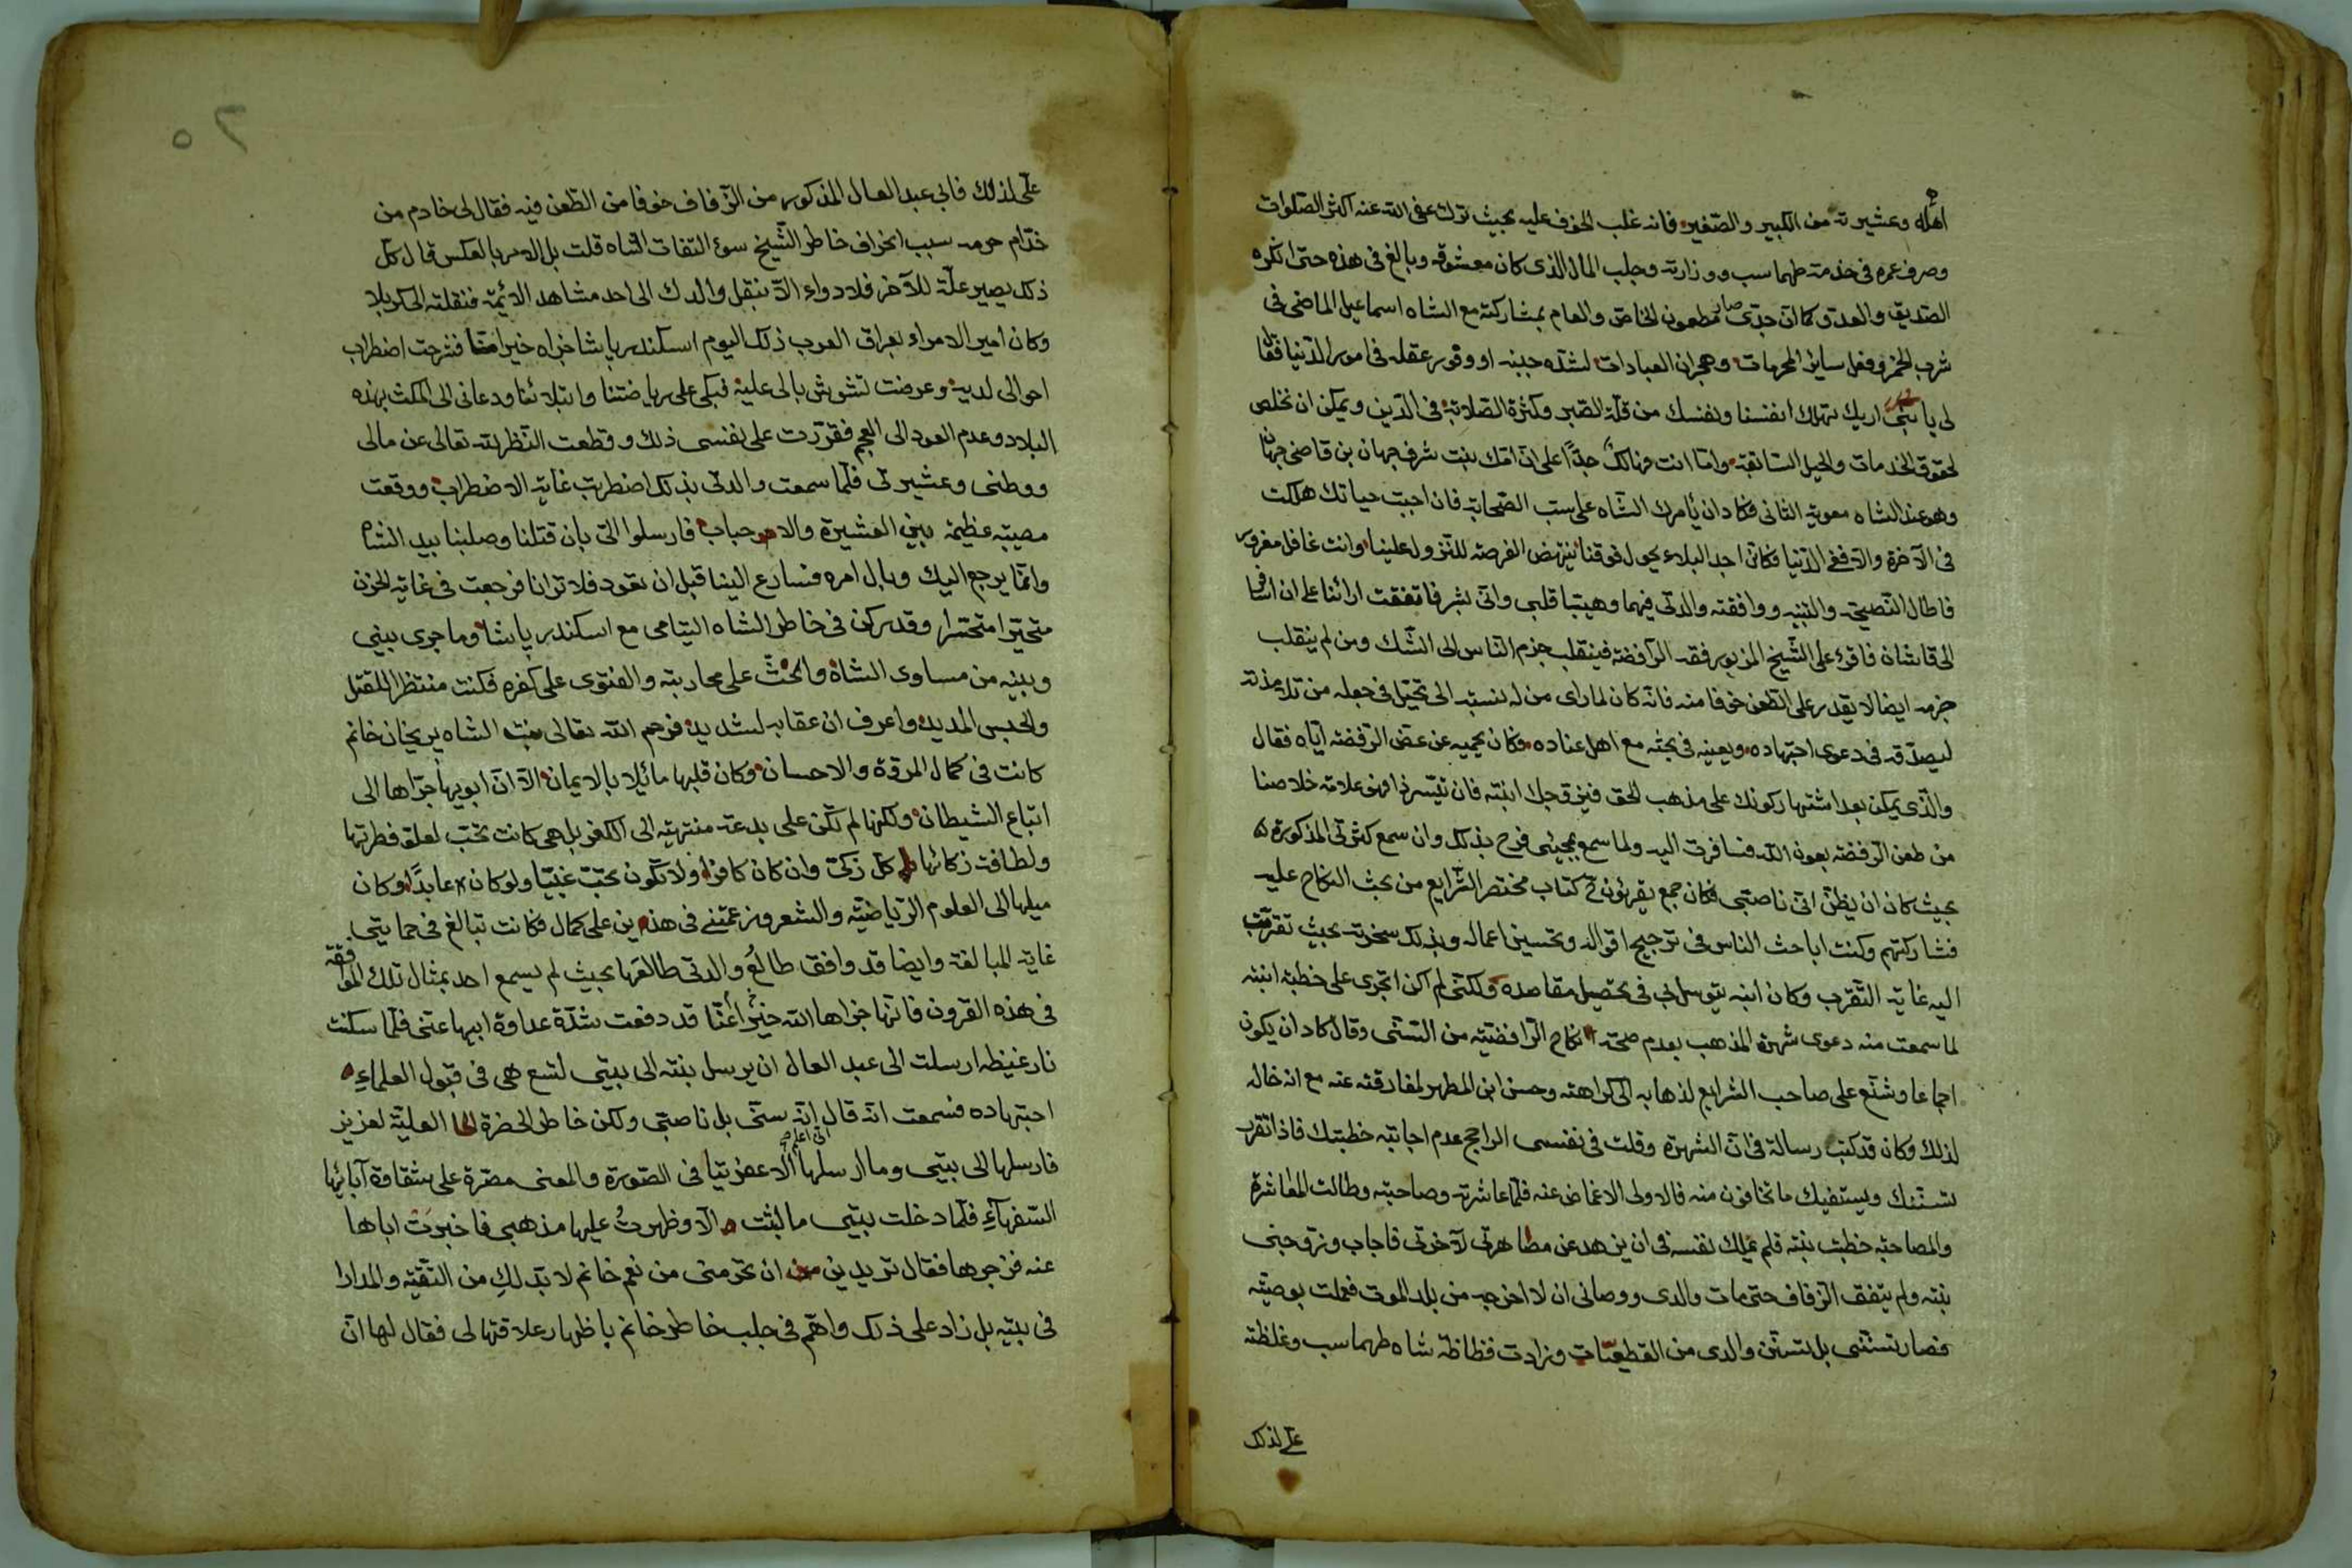 اهله وعشيرته من الكبير والصغير فانه غلب الخوف عليه بحيث ترك عفى الله عنه اكثر الصلوات
وصرف عمره فى خدمة طهماسب ووزارته وجلب المال الذى كان معشوقه وبالغ فى هذه حتى انكره
الصديق والعدو كما انّ جدّى صار مطعون الخاص والعام بمشاركته مع الشاه اسماعيل الماضى فى
شرب الخمر وفعل ساير المحرمات وهجران العبادات لشدّه جبنه او وفور عقله فى امور الدنيا فقال
لى يا بنىّ اريك تهلك انفسنا ونفسك من قلّة الصبر وكثرة الصلابة فى الدين ويمكن ان نخلص
لحقوق الخدمات والحيل السابقة وامّا انت فهالكٌ جدًّا على انّ امّك بنت شرف جهان بن قاضى جهان
وهو عند الشاه معوية الثانى فكاد ان يأمرك الشاه على سبّ الصحابة فان اجبت حياتك هلكت
فى الآخرة والا ففى الدنيا فكانّ اجد البلاء يحول فوقنا ينتهض الفرصة للنزول علينا وانت غافل مغرور
فاطال النصيحة والتنبيه ووافقته والدتى فيهما وهيّبا قلبى وانّى بشر فاتفقت ارائنا على ان اسافر
الى قاشان فاقرء على الشيخ المزبور فقه الرّافضة فينقلب جزم الناس الى الشك ومن لم ينقلب
جزمه ايضا لا يقدر على الطعن خوفا منه فانّه كان لما راى من له نسبة الى تحيّل فى جعله من تلامذته
ليصدّقه فى دعوى اجتهاده ويعينه فى بحثه مع اهل عناده وكان يحميه عن عضّ الرفضة ايّاه فقال
والّذى يمكن بعد اشتهار كونك على مذهب الحق فيزوّجك ابنته فان تيسّر ذا فهو علامة خلاصنا
من طعن الرفضة بعون الله فسافرت اليه ولما سمع بمجيئى فرح بذلك وان سمع كثرتى المذكورة
بحيث كان ان يظنّ انّى ناصبى فكان جمع يقرئون كتاب مختصر الشرايع من بحث النكاح عليه
فشاركتهم وكنت اباحث الناس فى ترجيح اقواله وتحسين اعماله وبذلك سخّرته بحيث تقرّبت
اليه غاية التقرب وكان ابنه يتوسل بى فى تحصيل مقاصده ولكنّى لم اكن اتجرى على خطبة ابنته
لما سمعت منه دعوى شهرة المذهب بعدم صحّة نكاح الرافضيّة من السنّى وقال كاد ان يكون
اجماعا وشنّع على صاحب الشرايع لذهابه الى كراهته وحسن ابن المطهر لمفارقته عنه مع انه خاله
لذلك وكان قد كتب رسالة فى انّ الشهرة وقلت فى نفسى الراجح عدم اجابته خطبتك فاذا تقرر
تسنّنك ويستفيك ما تخافون منه فالاولى الاغماض عنه فلمّا عاشرته وصاحبته وطالت المعاشرة
والمصاحبة خطبت بنته فلم يملك نفسه فى ان يزهد عن مصاهرتى لآخرتى فاجاب وزوّجنى
بنته ولم يتفق الزفاف حتى مات والدى ووصانى ان لا اخرجه من بلد الموت فعملت بوصيّته
فصار تسنّنى بل تسنّن والدى من القطعيّات وزادت فظاظة شاه طهماسب وغلظته
على ذلك
٥٢
علّى لذلك فابى عبد العال المذكور من الزفاف خوفا من الطعن فيه فقال لى خادم من
خدّام حرمه سبب انحراف خاطر الشّيخ سوء التفات الشاه قلت بل الامر بالعكس قال كل
ذلك يصير علّة للآخر فلا دواء الّا بنقل والدك الى احد مشاهد الائمّة فنقلته الى كربلا
وكان امير الامراء بعراق العرب ذلك اليوم اسكندر پاشا جزاه خيرا فشرحت اضطراب
احوالى لديه وعرضت تشويش بالى عليه فبكى على رياضتنا وابتلائنا ودعانى الى المكث بهذه
البلاد وعدم العود الى العجم فقرّرت على نفسى ذلك وقطعت النظر لله تعالى عن مالى
ووطنى وعشيرتى فلمّا سمعت والدتى بذلك اضطربت غاية الاضطراب ووقعت
مصيبة عظيمة بين العشيرة والاحباب فارسلوا الىّ بان قتلنا وصلبنا بيد الشاه
وانّما يرجع اليك وبال امره فسارع الينا قبل ان نقود فلا ترانا فرجعت فى غاية الحزن
متحيّرا متحسّرا وقد ركن فى خاطر الشاه التيامى مع اسكندر پاشا وما جرى بينى
وبينه من مساوى الشاه والحثّ على محاربته والفتوى على كفره فكنت منتظرا للقتل
والحبس المديد واعرف ان عقابه لشديد فرحم الله تعالى بنت الشاه پريخان خانم
كانت فى كمال المروّة والاحسان وكان قلبها مائلا بالايمان الّا انّ ابويها جرّاها الى
اتباع الشيطان ولكنها لم تكن على بدعة منتهية الى الكفر بل هى كانت تحبّ لعلو فطرتها
ولطافة زكائها كل زكىّ وان كان كافرا ولا تكون تحبّ غبيّا ولو كان عابدًا وكان
ميلها الى العلوم الرياضيّة والشعر وزعمتنى فى هذين على كمال فكانت تبالغ فى حمايتى
غاية المبالغة وايضا قد وافق طالعُ والدتى طالعَها بحيث لم يسمع احد بمثال تلك الموافقة
فى هذه القرون فانّها جزاها الله خيرًا عنّا قد دفعت شدّة عداوة ابيها عنّى فلمّا سكنت
نار غيظه ارسلت الى عبد العال ان يرسل بنته الى بيتى لتسع هى فى قبول العلماءِ
اجتهاده فسمعت انّه قال انّه سنّى بل ناصبى ولكن خاطر الحضرة العليّة لعزيز
فارسلها الى بيتى وما ارسلها انّى اعلم الّا عفريتا فى الصّورة والمعنى مصرّة على شقاوة آبائها
السّفهآءِ فلمّا دخلت بيتى ما لبثت الّا وظهرتُ عليها مذهبى فاخبرت اباها
عنه فزجرها فقال تريدين ان تحرمنى من نعم خانم لا بدّ لكِ من التقيّة والمدارا
فى بيته بل زاد على ذلك واهتمّ فى جلب خاطر خانم باظهار علاقتها لى فقال لها انّ